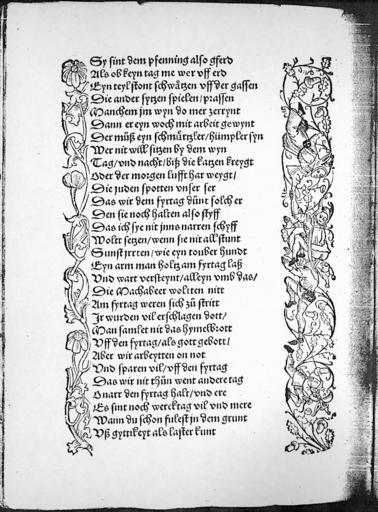 Sy sint dem pfenning also gferd
Als ob keyn tag me wer vff erd
Eyn teyl stont schwätzen vff der gassen
Die ander sytzen spielen/prassen
Manchem jm wyn do mer zerrynt
Dann er eyn woch mit arbeit gewynt
Der müß eyn schmürtzler/hümpler syn
Wer nit will sitzen by dem wyn
Tag/vnd nacht/biß die katzen kreygt
Oder der morgen lufft har weygt/
Die juden spotten vnser ser
Das wir dem fyrtag dünt solch er
Den sie noch halten also styff
Das ich sye nit jnns narren schyff
Wolt setzen/wenn sie nit all stunt
Sunst jrrten/wie eyn touber hundt
Eyn arm man holtz am fyrtag laß
Vnd wart versteynt/alleyn vmb das/
Die Machabeer woltten nitt
Am fyrtag weren sich zů stritt
Jr wurden vil erschlagen dott/
Man samlet nit das hymelbrott
Vff den fyrtag/als gott gebott/
Aber wir arbeytten on not
Vnd sparen vil/vff den fyrtag
Das wir nit thün went andere tag
O narr den fyrtag halt/vnd ere
Es sint noch wercktag vil vnd mere
Wann du schon fulest jn dem grunt
Vß gyttikeyt als laster kunt